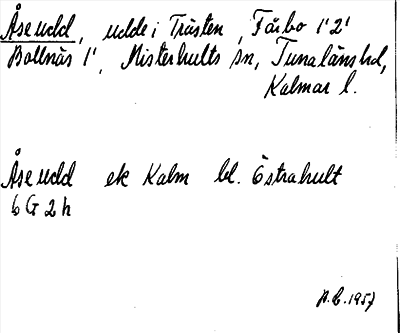 Åse udd, udde i Trästen, Fårbo 1' 2'
Bollnäs 1', Misterhults sn, Tunaläns hd,
Kalmar l.
Åse udd ek Kalm bl. Östrahult
6 G 2 h
1957